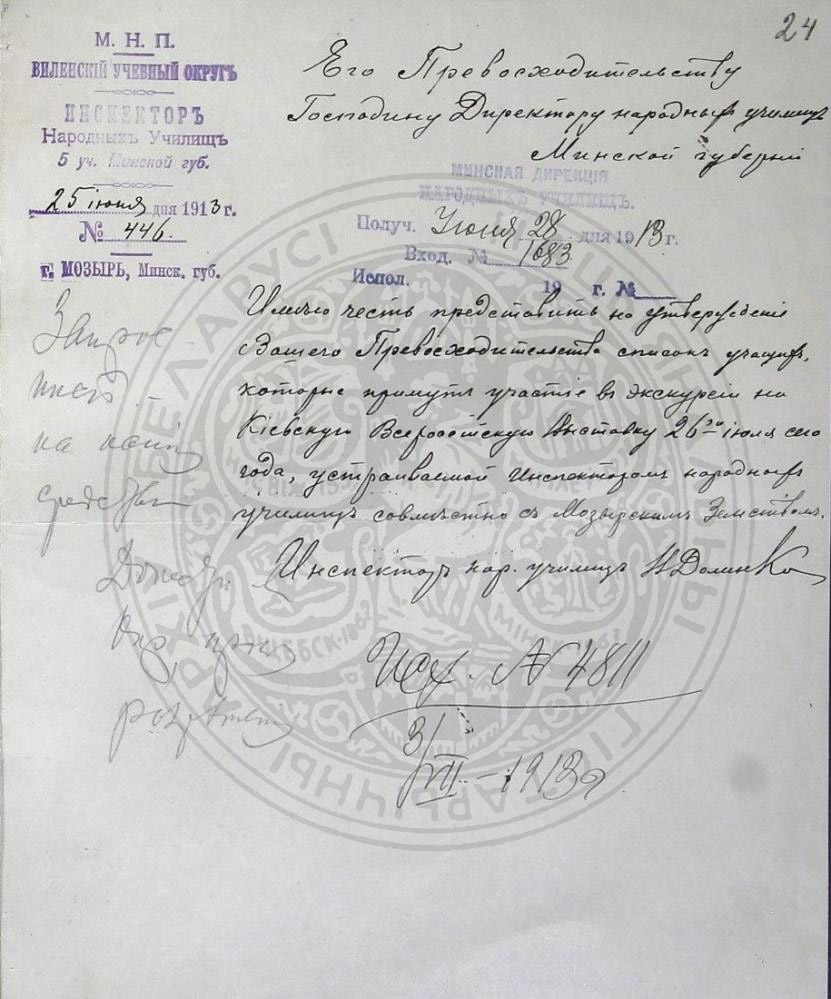 24
М. Н. П.
ВИЛЕНСКІЙ УЧЕБНЫЙ ОКРУГЪ
ИНСПЕКТОРЪ
Народныхъ Училищъ
5 уч. Минской губ.
25 іюня дня 1913 г.
№ 446.
г. МОЗЫРЬ, Минск. губ.
Его Превосходительству
Господину Директору народныхъ училищъ
Минской губерніи
МИНСКАЯ ДИРЕКЦІЯ
НАРОДНЫХЪ УЧИЛИЩЪ.
Получ. Іюня 28 дня 1913 г.
Вход. № 1683
Испол. 19 г. №
Имѣю честь представить на утвержденіе
Вашего Превосходительства списокъ учащихъ,
которые примутъ участіе въ экскурсіи на
Кіевскую Всероссійскую Выставку 26го іюля сего
года, устраиваемой Инспекторомъ народныхъ
училищъ совмѣстно съ Мозырскимъ Земствомъ.
Инспекторъ нар. училищъ Н Долинко
Запрос
на какія
средства
Исх. № 4811
3/VII - 1913 г